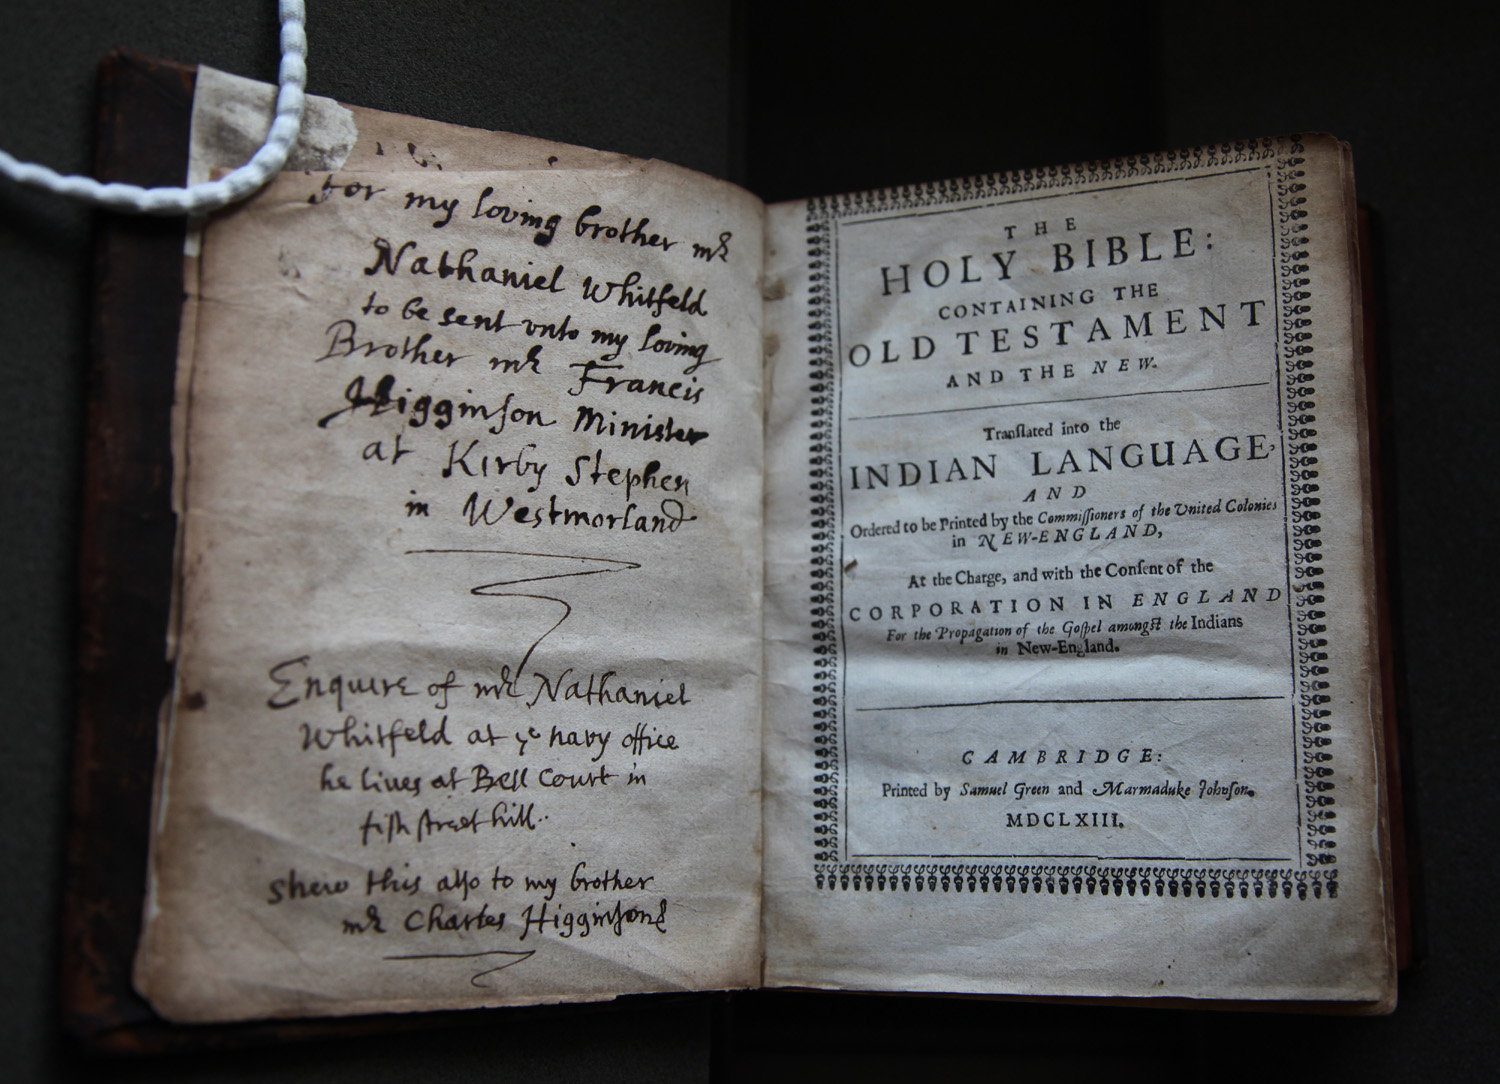 for my loving brother mr
Nathaniel Whitfeld
to be sent vnto my loving
Brother mr Francis
Higginſon Minister
at Kirby Stephen
in Westmorland
Enquire of mr Nathaniel
Whitfeld at ye navy office
he lives at Bell Court in
fiſh ſtreet hill..
shew this alſo to my brother
mr Charles Higginſon
THE
HOLY BIBLE:
CONTAINING THE
OLD TESTAMENT
AND THE NEW.
Tranſlated into the
INDIAN LANGUAGE,
AND
Ordered to be Printed by the Commiſſioners of the United Colonies
in NEW-ENGLAND,
At the Charge, and with the Conſent of the
CORPORATION IN ENGLAND
For the Propagation of the Goſpel amongſt the Indians
in New-England.
CAMBRIDGE:
Printed by Samuel Green and Marmaduke Johnſon.
MDCLXIII.